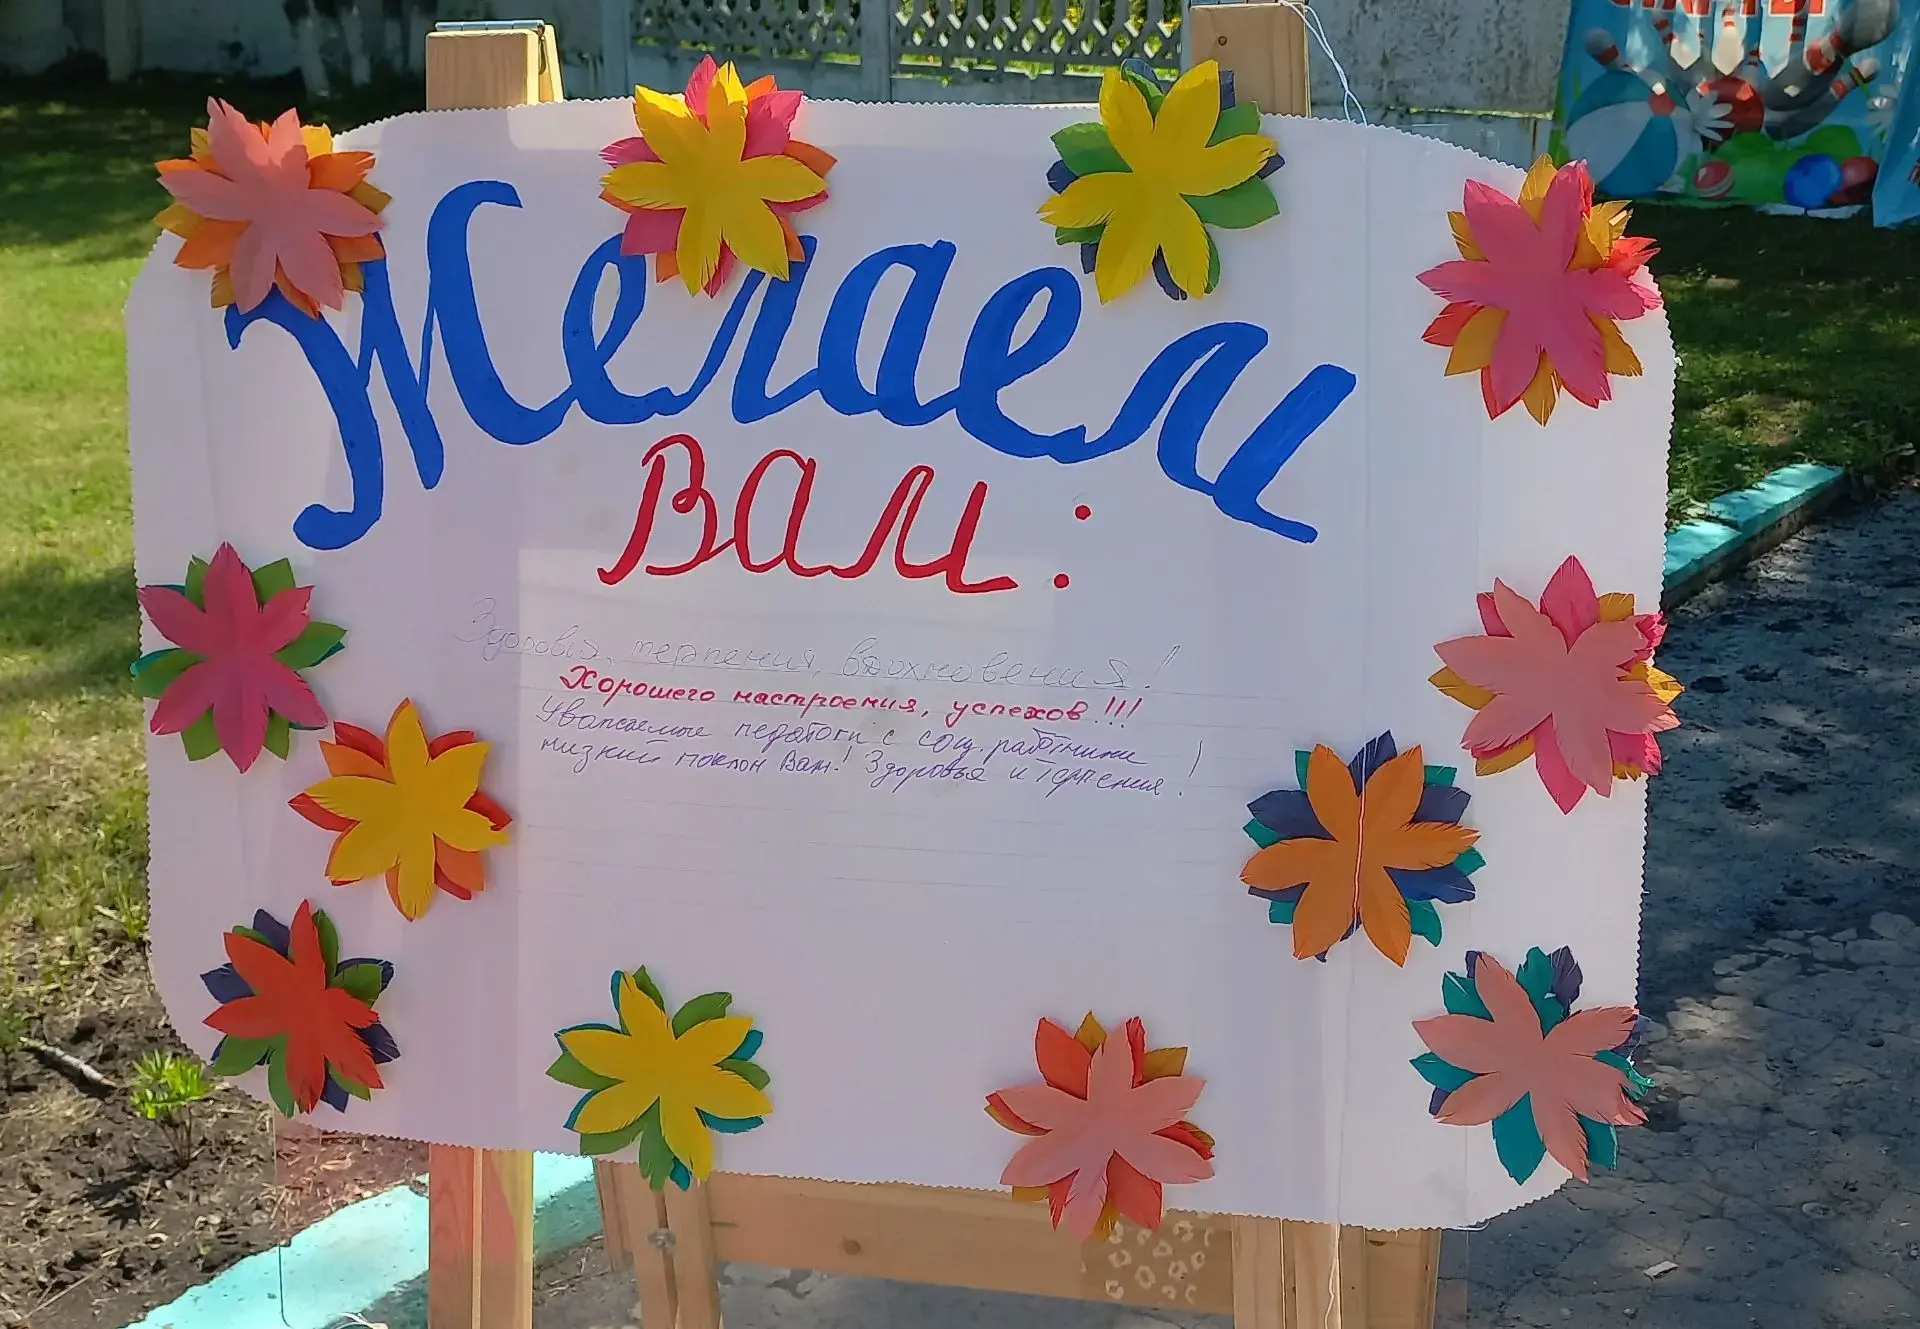 Желаем
Вам:
Здоровья, терпения, вдохновения!
Хорошего настроения, успехов!!!
Уважаемые педагоги с соц. работники
низкий поклон Вам! Здоровья и терпения!